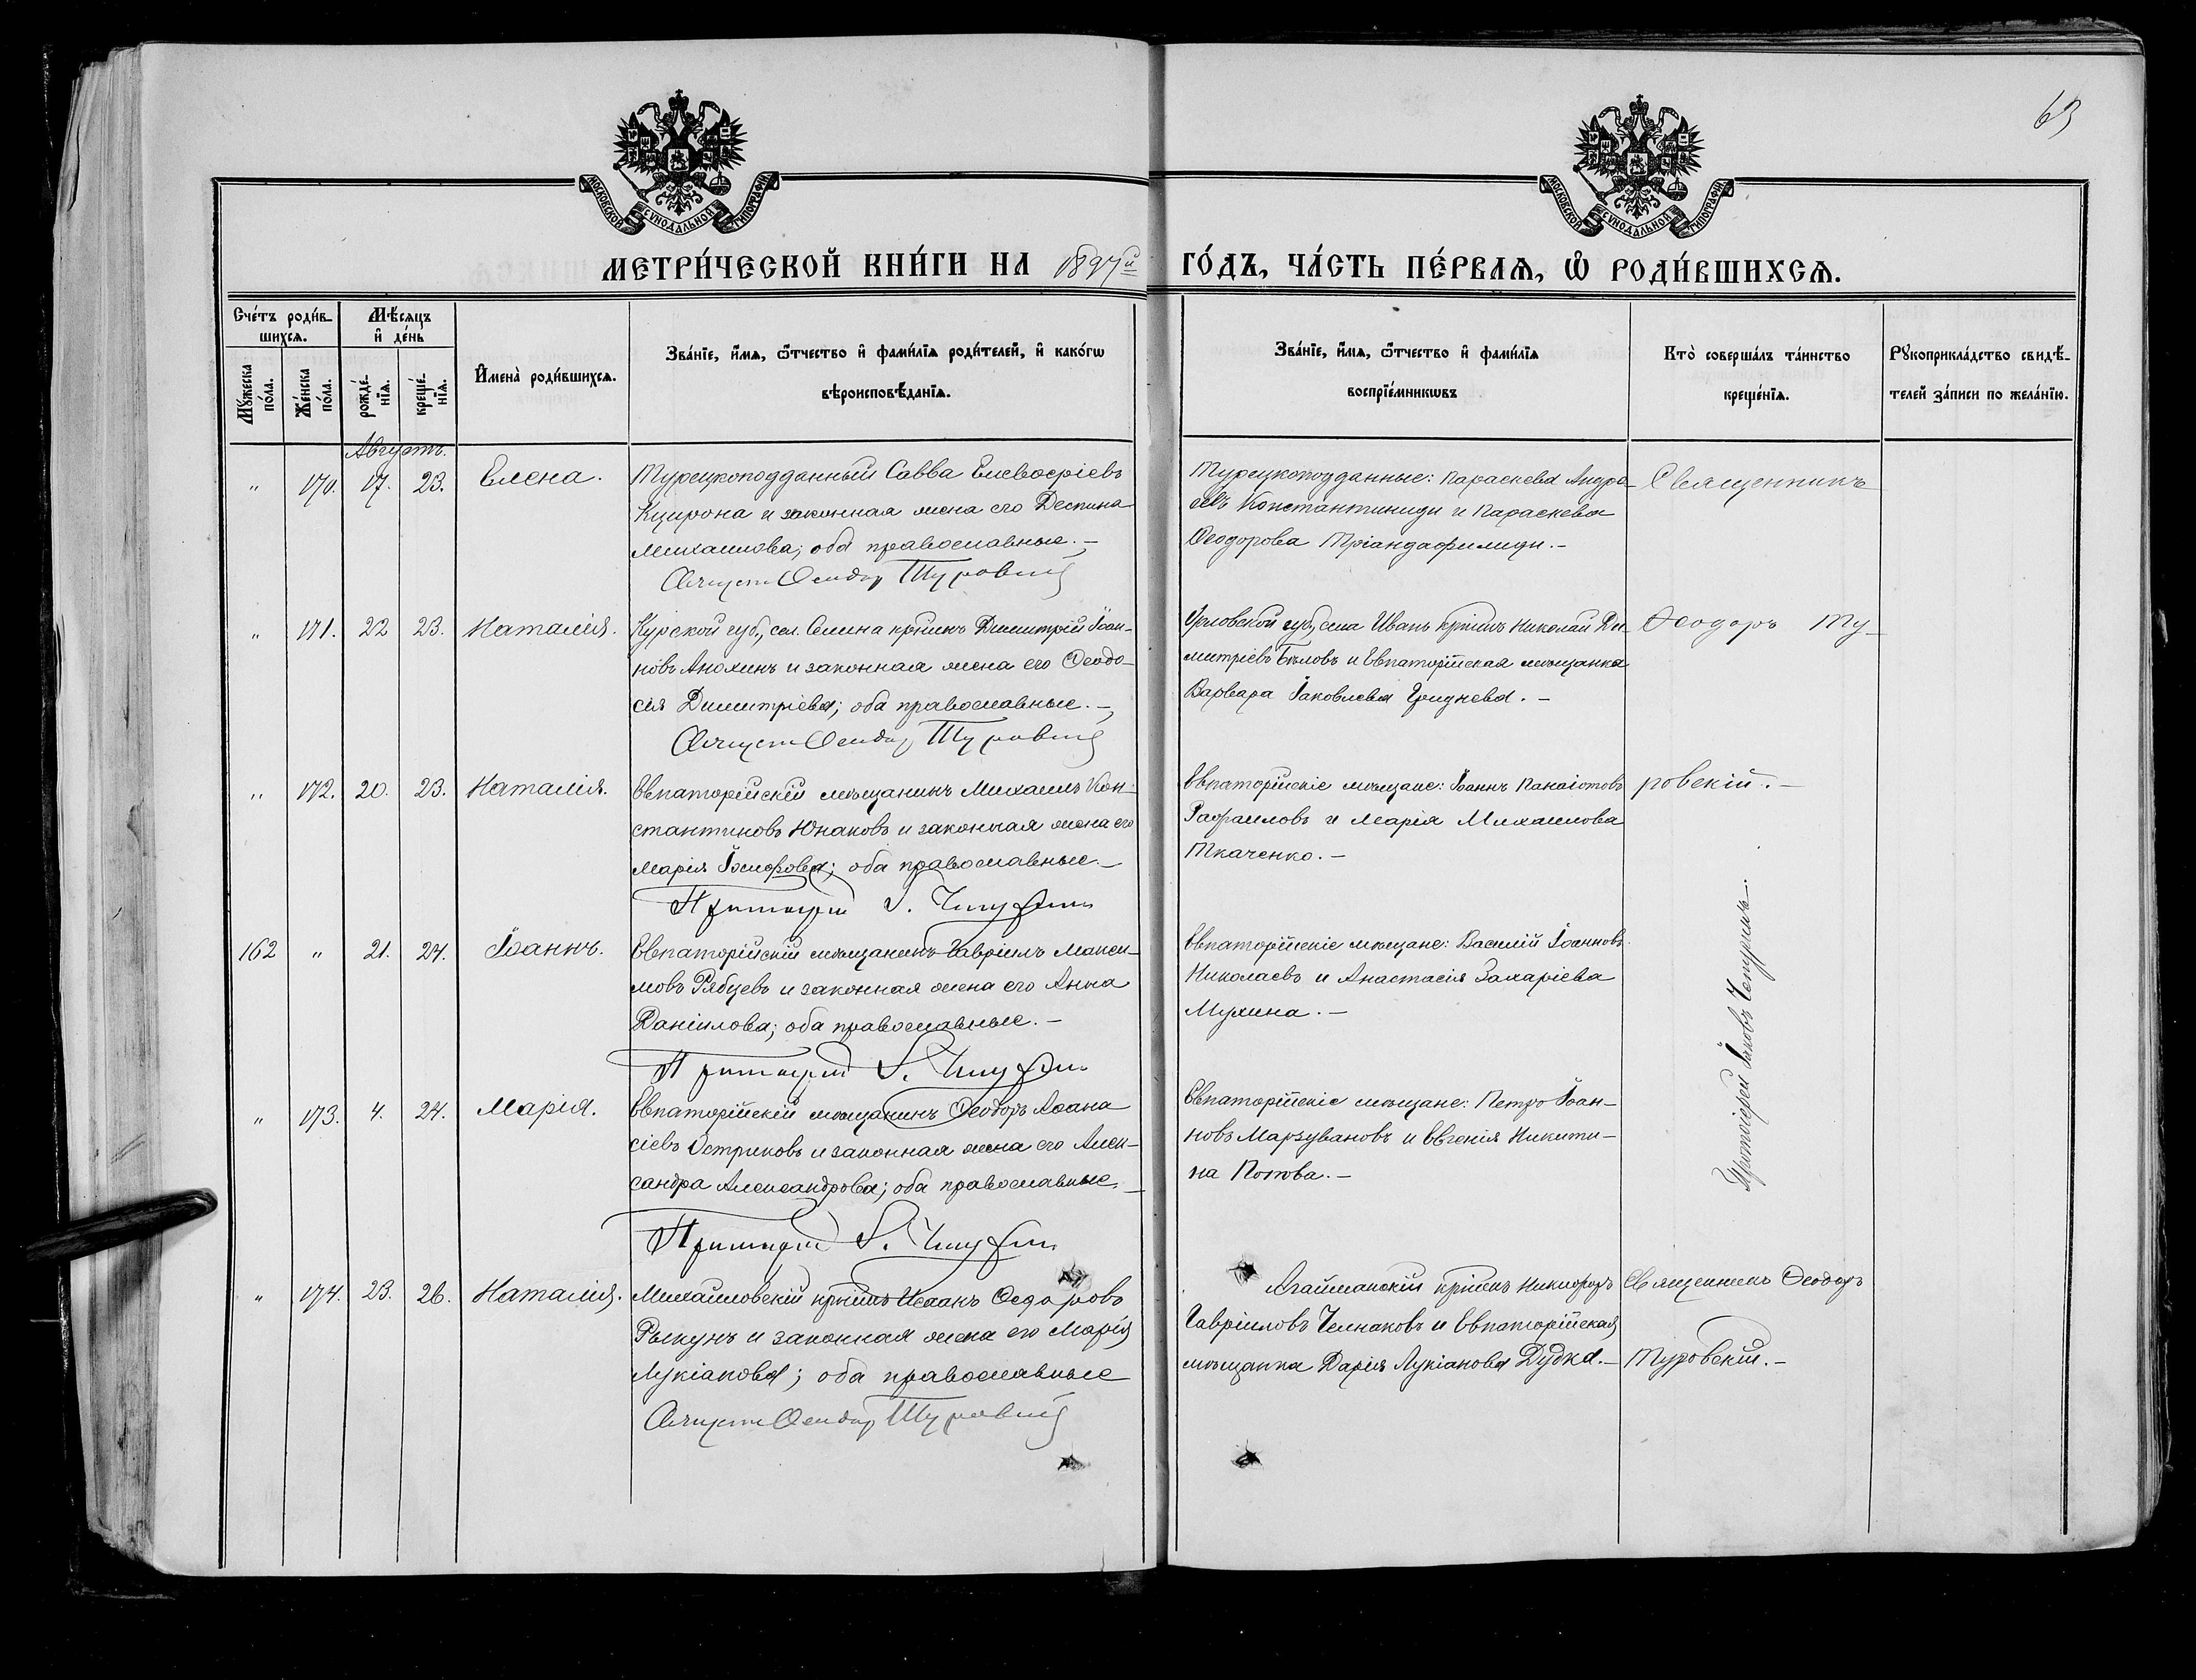 63
МОСКОВСКОЙ СУНОДАЛЬНОЙ ТИПОГРАФІИ
МОСКОВСКОЙ СУНОДАЛЬНОЙ ТИПОГРАФІИ
МЕТРИ́ЧЕСКОЙ КНИ́ГИ НА 1897й ГО́ДЪ, ЧА́СТЬ ПЕ́РВАѦ, Ѡ҆ РОДИ́ВШИХСѦ.
Сче́тъ роди́в-
шихсѧ.
Мꙋжеска по́ла.
Же́нска по́ла.
Мѣ́сѧцъ
и҆ де́нь
рожде́-
нїѧ.
креще́-
нїѧ.
И҆мена̀ роди́вшихсѧ.
Зва́нїе, и҆́мѧ, ѻ҆́тчество и҆ фами́лїѧ роди́телей, и҆ како́гѡ
вѣроисповѣ́данїѧ.
Зва́нїе, и҆́мѧ, ѻ҆́тчество и҆ фами́лїѧ
воспрїе́мникѡвъ
Кто̀ соверша́лъ та́инство
креще́нїѧ.
Рꙋкоприкла́дство свидѣ́-
телей за́писи по жела́нїю.
Августъ.
" 170. 17. 23. Елена.
Турецкоподданный Савва Елевоеріевъ
и законная жена его Деспина
Михаилова; оба православные.—
Ѳеодор Туровскій
Турецкоподданные: Параскева Андре-
евъ Константиниди и Параскева
Ѳеодорова Тріандафилиди.—
Священникъ
" 171. 22 23. Наталія.
Курской губ., сел. Селина кр҃нинъ Димитрій Іоан-
новъ Анохинъ и законная жена его Ѳеодо-
сія Димитріева; оба православные.—
Ѳеодор Туровскій
Орловской губ, села Иванъ кр҃нинъ Николай Ди-
митріевъ Бѣловъ и Евпаторійская мѣщанка
Варвара Іаковлева Гриднева.—
Ѳеодоръ Ту-
" 172. 20. 23. Наталія.
Евпаторійскій мѣщанинъ Михаилъ Кон-
стантиновъ Юнаковъ и законная жена его
Марія Іосифова; оба православные.—
Протоіерей І. Чепуринъ
Евпаторійскіе мѣщане: Іоаннъ Панаіотовъ
Рафаиловъ и Марія Михаилова
Ткаченко.—
ровскій.—
162 " 21. 24. Іоаннъ.
Евпаторійскій мѣщанинъ Гавріилъ Макси-
мовъ Рябцевъ и законная жена его Анна
Даніилова; оба православные.—
Протоіерей І. Чепуринъ
Евпаторійскіе мѣщане: Василій Іоанновъ
Николаевъ и Анастасія Захаріева
Мухина.—
Протоіерей Іаковъ Чепуринъ.
" 173. 4. 24. Марія.
Евпаторійскій мѣщанинъ Ѳеодоръ Аѳана
сіевъ Остриковъ и законная жена его Алек-
сандра Александрова; оба православные.—
Протоіерей І. Чепуринъ
Евпаторійскіе мѣщане: Петръ Іоан-
новъ Марзувановъ и Евгенія Никити-
на Попова.—
" 174. 23. 26. Наталія.
Михайловскій кр҃нинъ Исаакъ Ѳедоровъ
Рыкунъ и законная жена его Марія
Лукіанова; оба православные
Ѳеодор Туровскій
Агайманскій кр҃нинъ Никифоръ
Гавріиловъ Челнаковъ и Евпаторійская
мѣщанка Дарія Лукіанова Дудка.—
Священникъ Ѳеодоръ
Туровскій.—